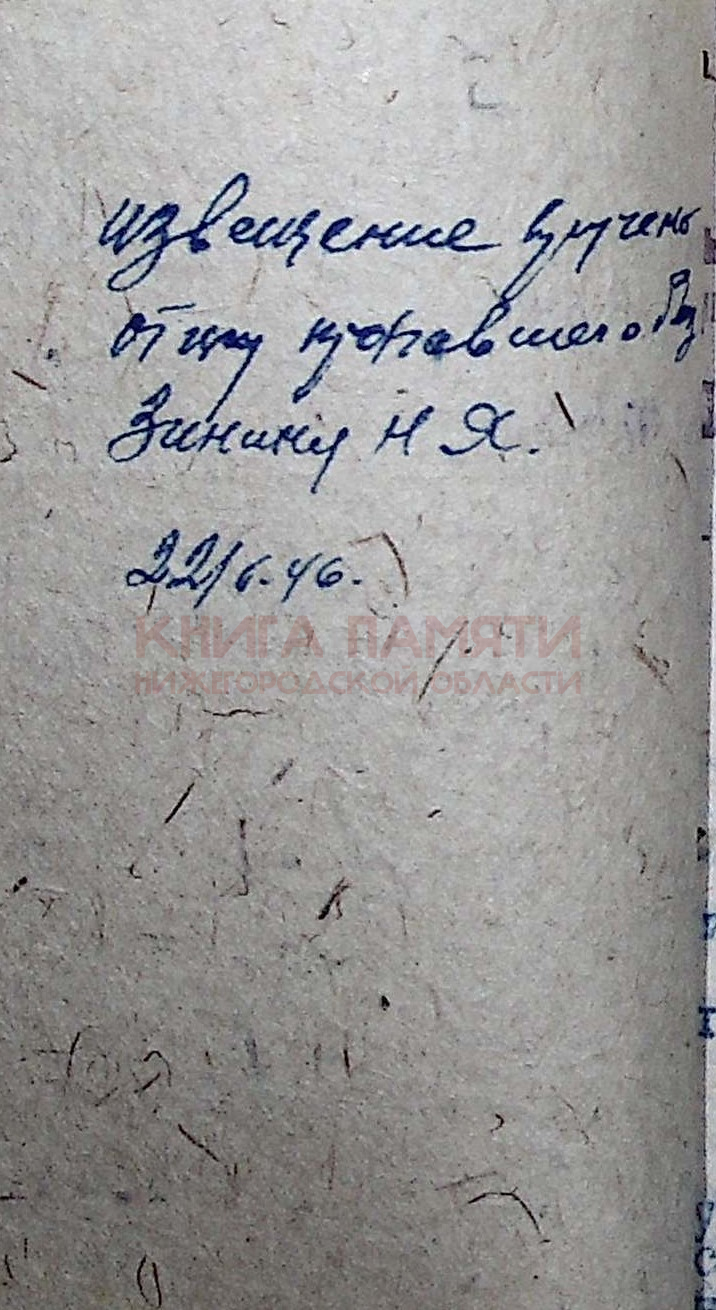 извещение вручено
отцу пропавшего без
Зинину Н Я.
22/6.46.
КНИГА ПАМЯТИ
НИЖЕГОРОДСКОЙ ОБЛАСТИ